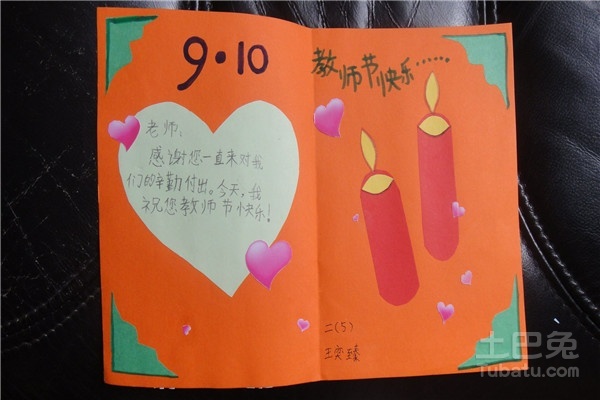 9·10
老师、
感谢您一直来对我
们的辛勤付出。今天,我
祝您教师节快乐!
教师节快乐……
二(5)
王奕臻
土巴兔
tubatu.com